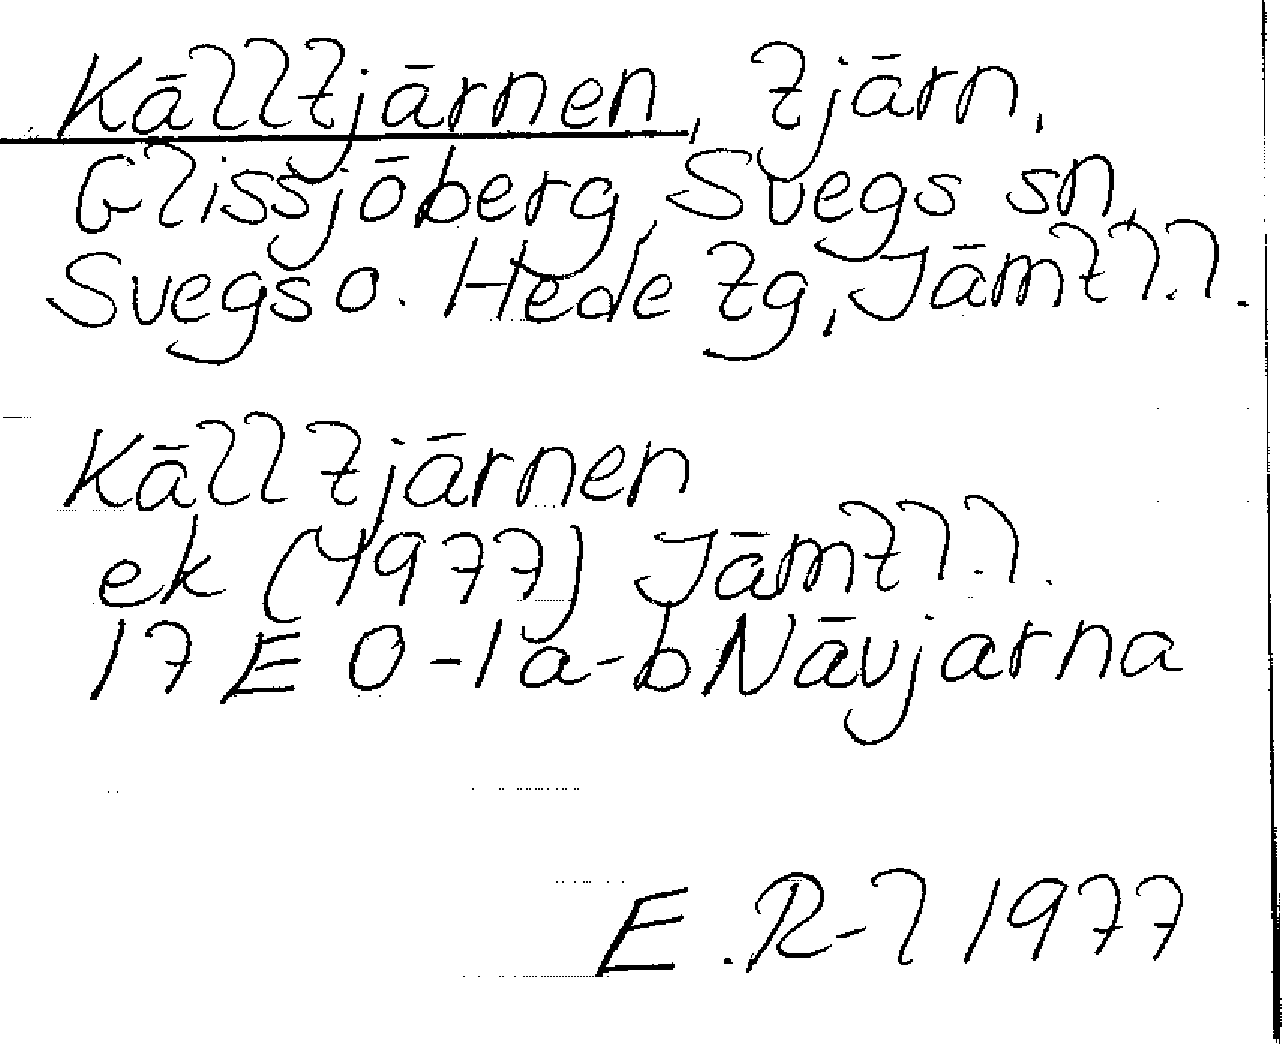 Källtjärnen, tjärn,
Glissjöberg, Svegs sn,
Svegs o. Hede tg, Jämtl.l.
Källtjärnen
ek (1977) Jämtl.l.
17 E 0-1a-b Nävjarna
E.R-l 1977